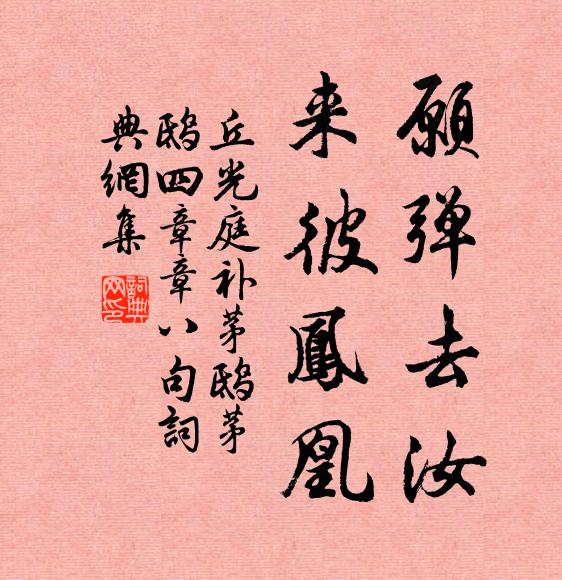 願弹去汝
来彼鳳凰
丘光庭补茅鴟茅
鴟四章章八句詞
典網集
詞典网印